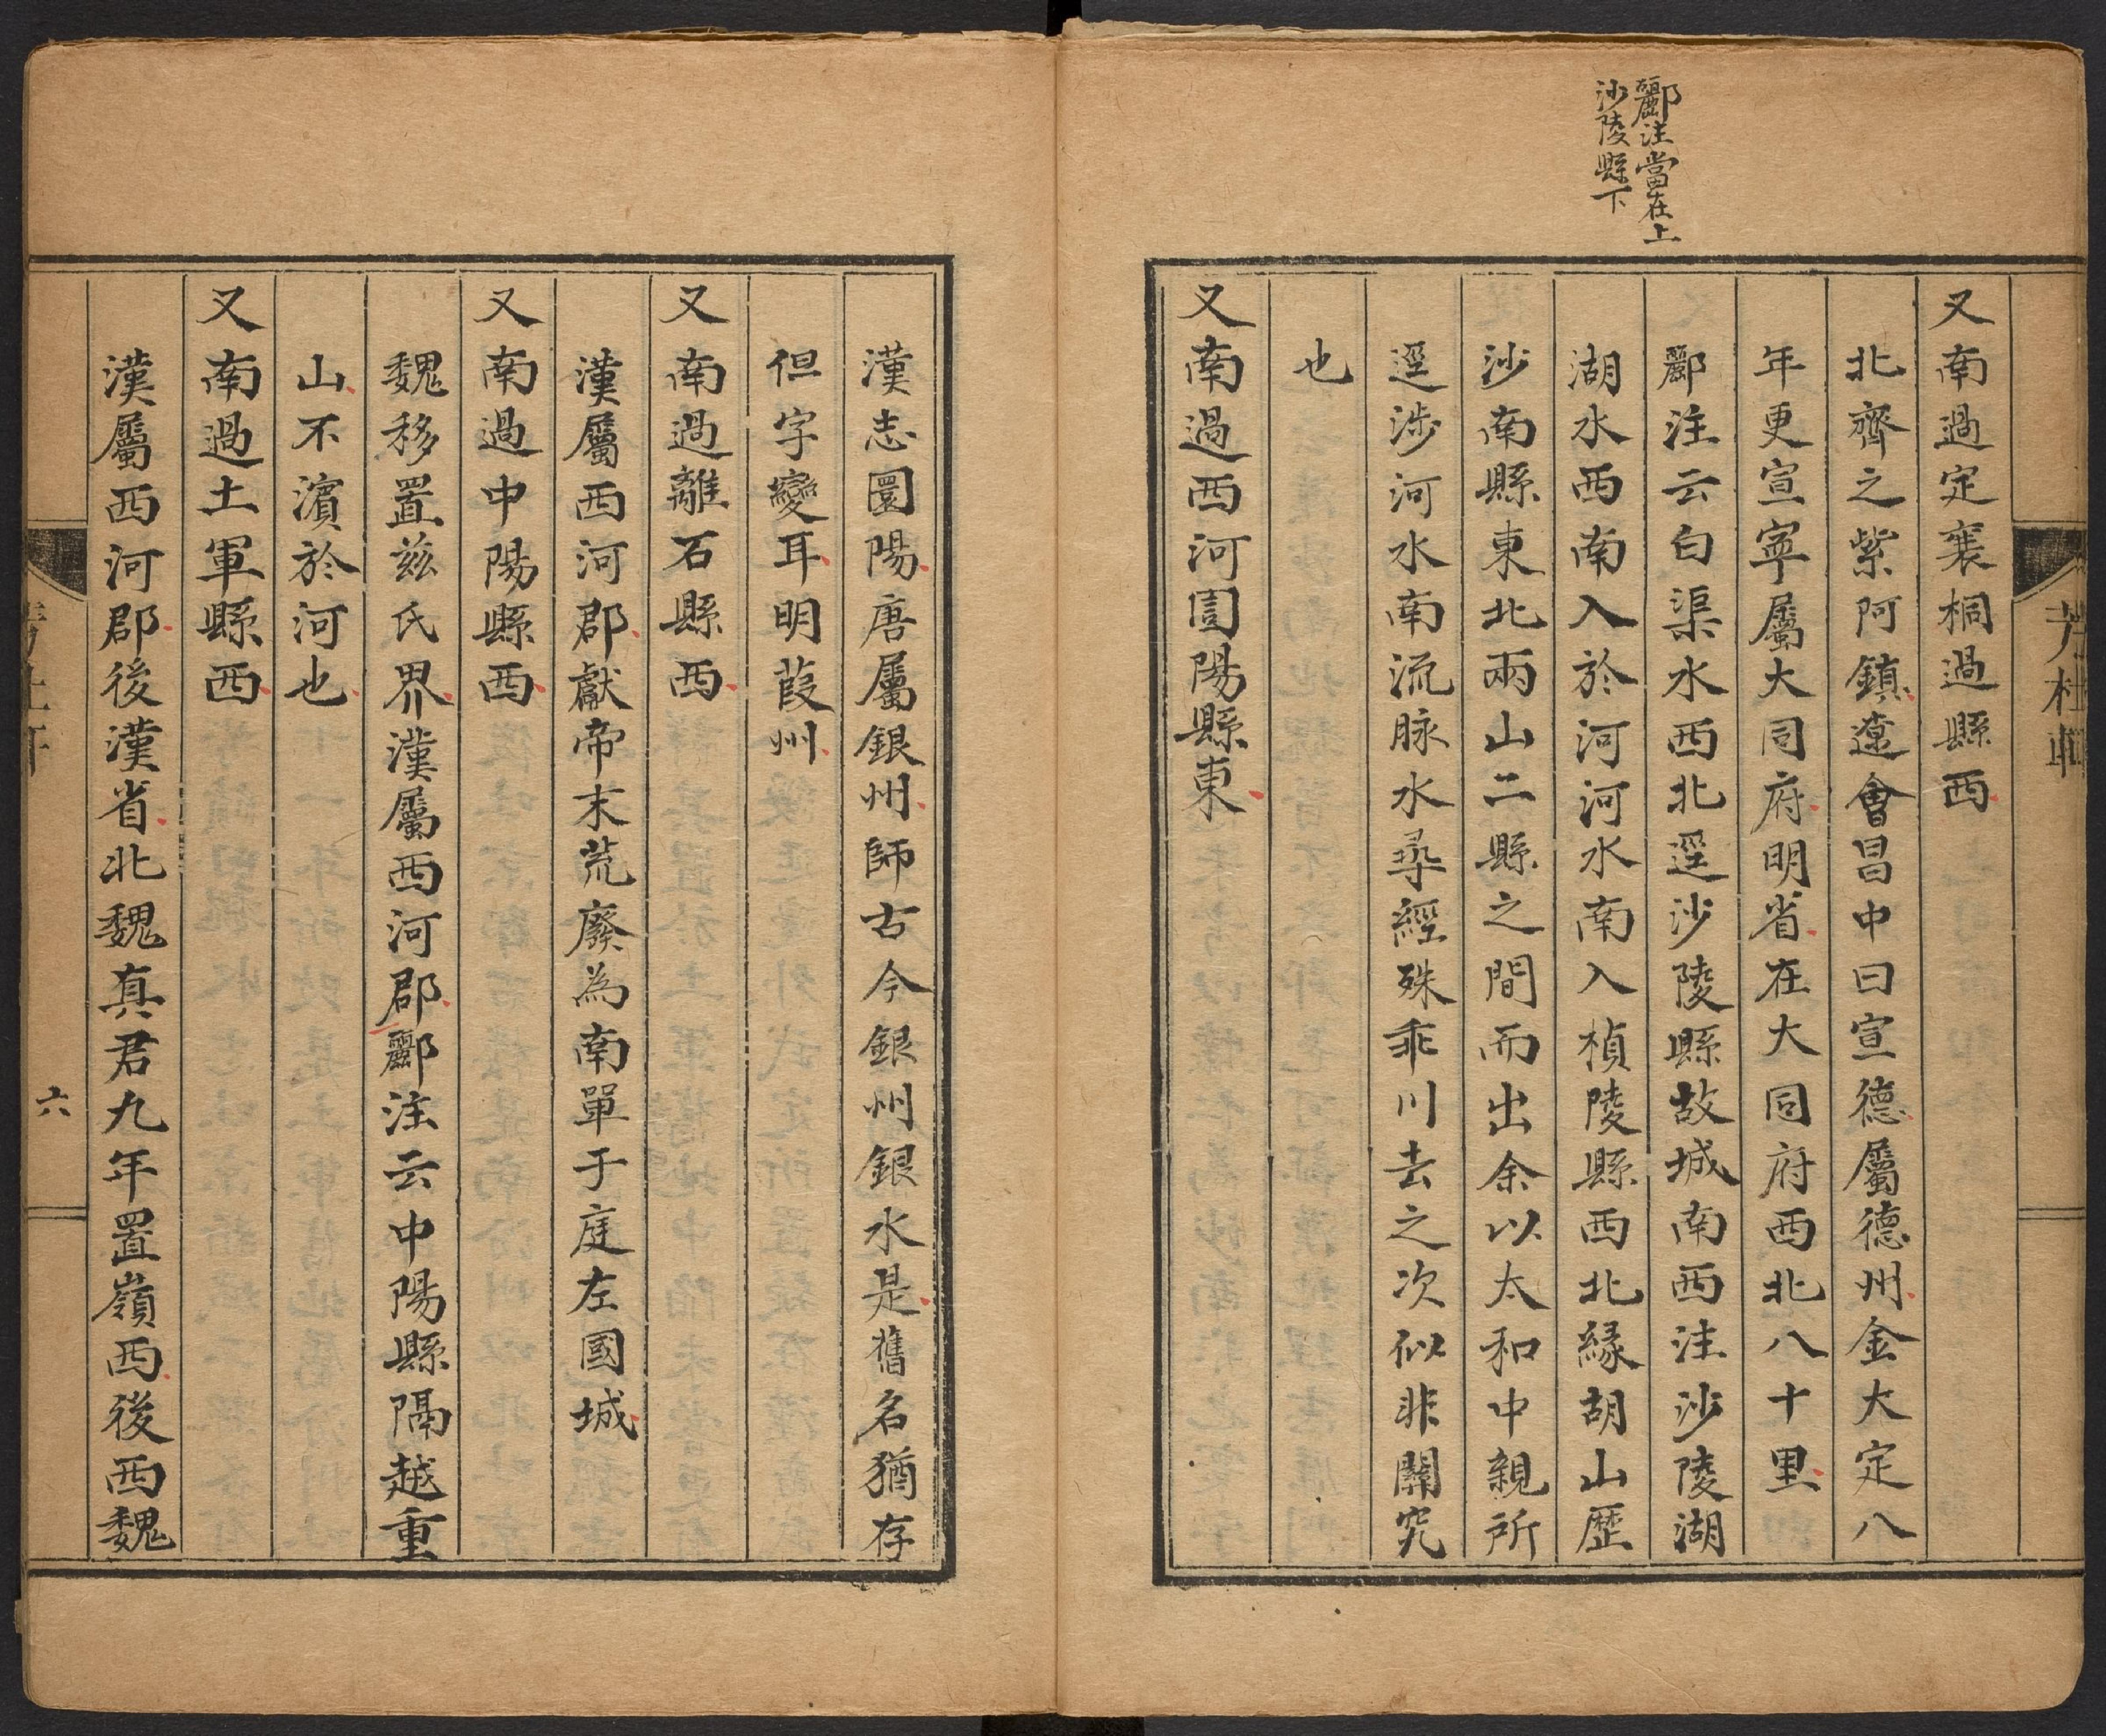 酈注當在上
沙陵縣下
又南過定襄桐過縣西
北齊之紫阿鎮遼會昌中曰宣德屬德州金大定八
年更宣寧屬大同府明省在大同府西北八十里
酈注云白渠水西北逕沙陵縣故城南西注沙陵湖
湖水西南入於河河水南入楨陵縣西北緣胡山歷
沙南縣東北兩山二縣之間而出余以太和中親所
逕涉河水南流脉水尋經殊乖川去之次似非關究
也
又南過西河圁陽縣東
漢志圜陽唐屬銀州師古今銀州銀水是舊名猶存
但字變耳明葭州
又南過離石縣西
漢屬西河郡獻帝末荒廢為南單于庭左國城
又南過中陽縣西
魏移置兹氏界漢屬西河郡酈注云中陽縣隔越重
山不濱於河也
又南過土軍縣西
漢屬西河郡後漢省北魏真君九年置嶺西後西魏
六